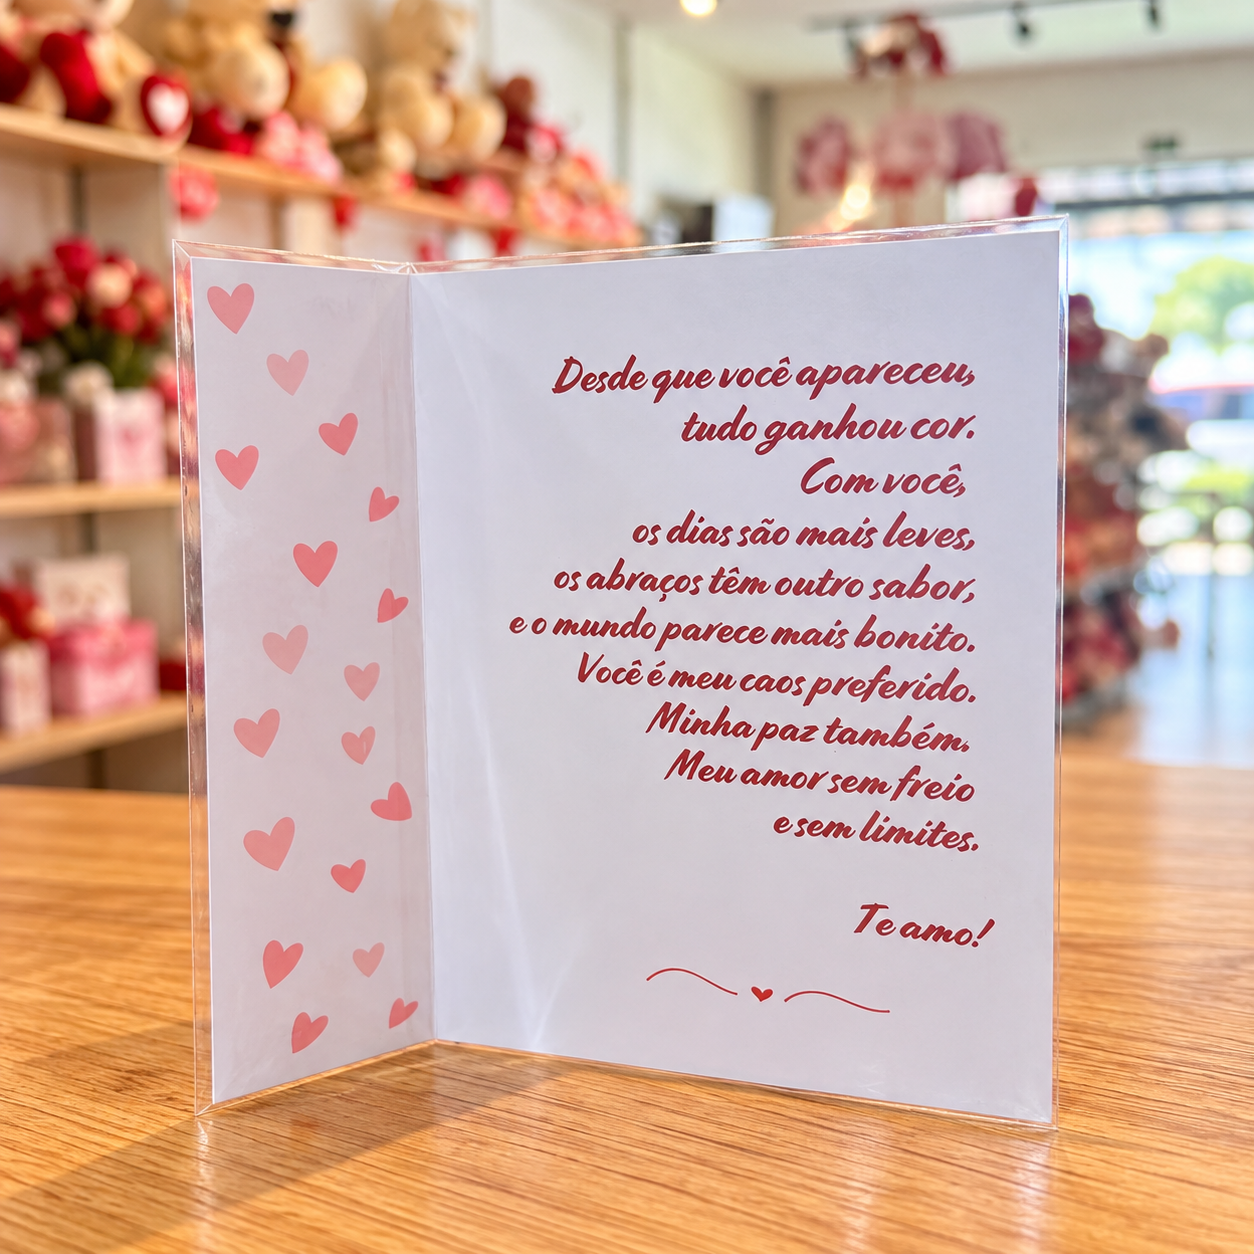 Desde que você apareceu,
tudo ganhou cor.
Com você,
os dias são mais leves,
os abraços têm outro sabor,
e o mundo parece mais bonito.
Você é meu caos preferido.
Minha paz também.
Meu amor sem freio
e sem limites.
Te amo!